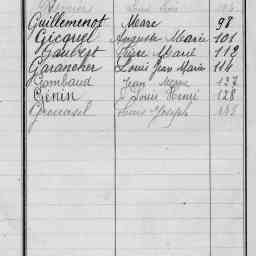 Guillemenot Marc 98
Gicquel Auguste Marie 101
Gaubert Pierre Marie 112
Garancher Louis Jean Marie 114
Gombaud Jean Marie 127
Génin Louis Henri 128
Louis Joseph